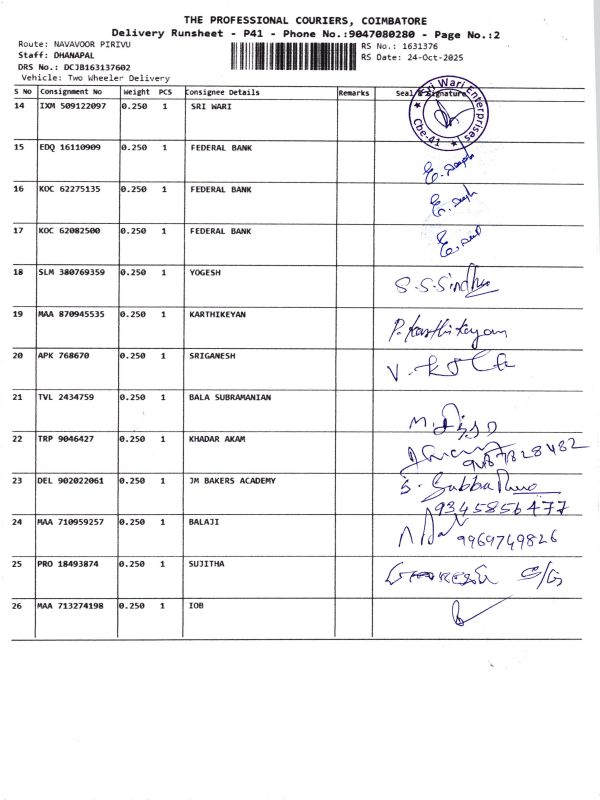 THE PROFESSIONAL COURIERS, COIMBATORE
Delivery Runsheet - P41 - Phone No.:9047080280 - Page No.:2
Route: NAVAVOOR PIRIVU RS No.: 1631376
Staff: DHANAPAL RS Date: 24-Oct-2025
DRS No.: DCJB163137602
Vehicle: Two Wheeler Delivery
S No Consignment No Weight PCS Consignee Details Remarks Seal & Signature
14 IXM 509122097 0.250 1 SRI WARI
Sri Wari Enterprises Cbe-41
15 EDQ 16110909 0.250 1 FEDERAL BANK
16 KOC 62275135 0.250 1 FEDERAL BANK
17 KOC 62082500 0.250 1 FEDERAL BANK
18 SLM 380769359 0.250 1 YOGESH
S.S.Sindhu
19 MAA 870945535 0.250 1 KARTHIKEYAN
P. Karthikeyan
20 APK 768670 0.250 1 SRIGANESH
21 TVL 2434759 0.250 1 BALA SUBRAMANIAN
22 TRP 9046427 0.250 1 KHADAR AKAM
9487828482
23 DEL 902022061 0.250 1 JM BAKERS ACADEMY
9345856477
24 MAA 710959257 0.250 1 BALAJI
9969749826
25 PRO 18493874 0.250 1 SUJITHA
26 MAA 713274198 0.250 1 IOB